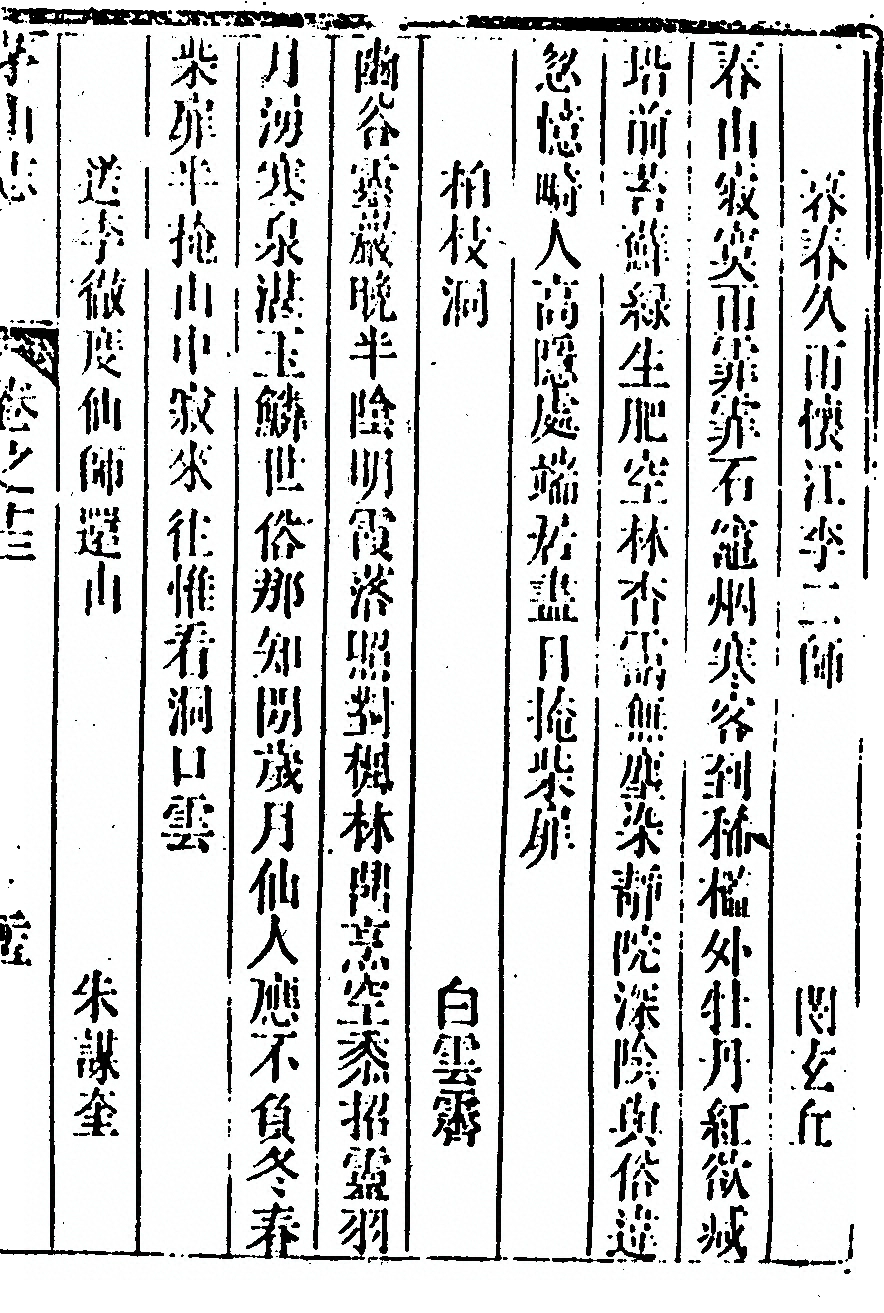 暮春久雨懷江李二師 閔玄丘
春山寂寞雨霏霏石竈烟寒客到稀檻外牡丹紅欲㓕
堦前苔蘚綠生肥空林杏靄無塵染靜院深陰與俗違
忽憶畸人高隱處端居盡日掩柴扉
柏枝洞 白雲霽
幽谷靈巖晚半陰明霞落照對楓林開烹空黍招靈羽
月湧寒泉湛玉鱗世俗那知閱歲月仙人應不負冬春
柴扉半掩山中寂來往惟看洞口雲
送李徹度仙師還山 朱謀㙔
茅山志 卷之十三